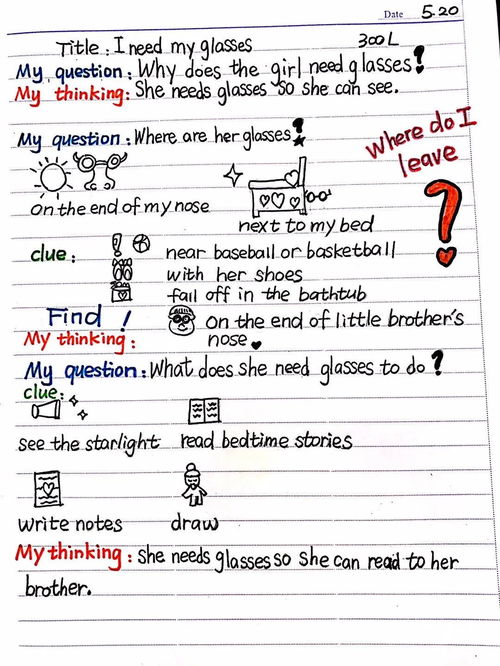 Date 5.20
Title : I need my glasses 300L
My question : Why does the girl need glasses?
My thinking : She needs glasses so she can see.
My question : Where are her glasses?
Where do I
leave
?
on the end of my nose
next to my bed
clue : near baseball or basketball
with her shoes
fall off in the bathtub
Find ! on the end of little brother's
My thinking : nose.
My question : What does she need glasses to do ?
clue :
see the starlight read bedtime stories
write notes draw
My thinking : She needs glasses so she can read to her
brother.